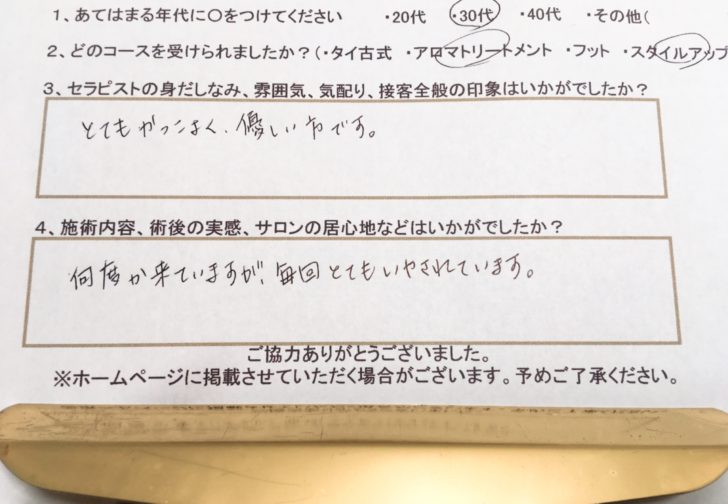 1、あてはまる年代に〇をつけてください ・20代 ・30代 ・40代 ・その他(
2、どのコースを受けられましたか?(・タイ古式 ・アロマトリートメント ・フット ・スタイルアップ
3、セラピストの身だしなみ、雰囲気、気配り、接客全般の印象はいかがでしたか?
とてもかっこよく、優しい方です。
4、施術内容、術後の実感、サロンの居心地などはいかがでしたか?
何度か来ていますが、毎回とてもいやされています。
ご協力ありがとうございました。
※ホームページに掲載させていただく場合がございます。予めご了承ください。